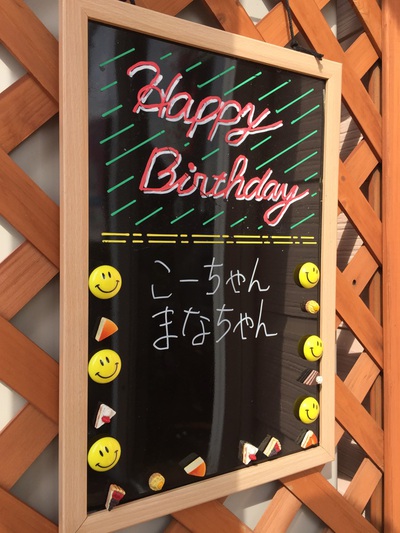 Happy
Birthday
こーちゃん
まなちゃん